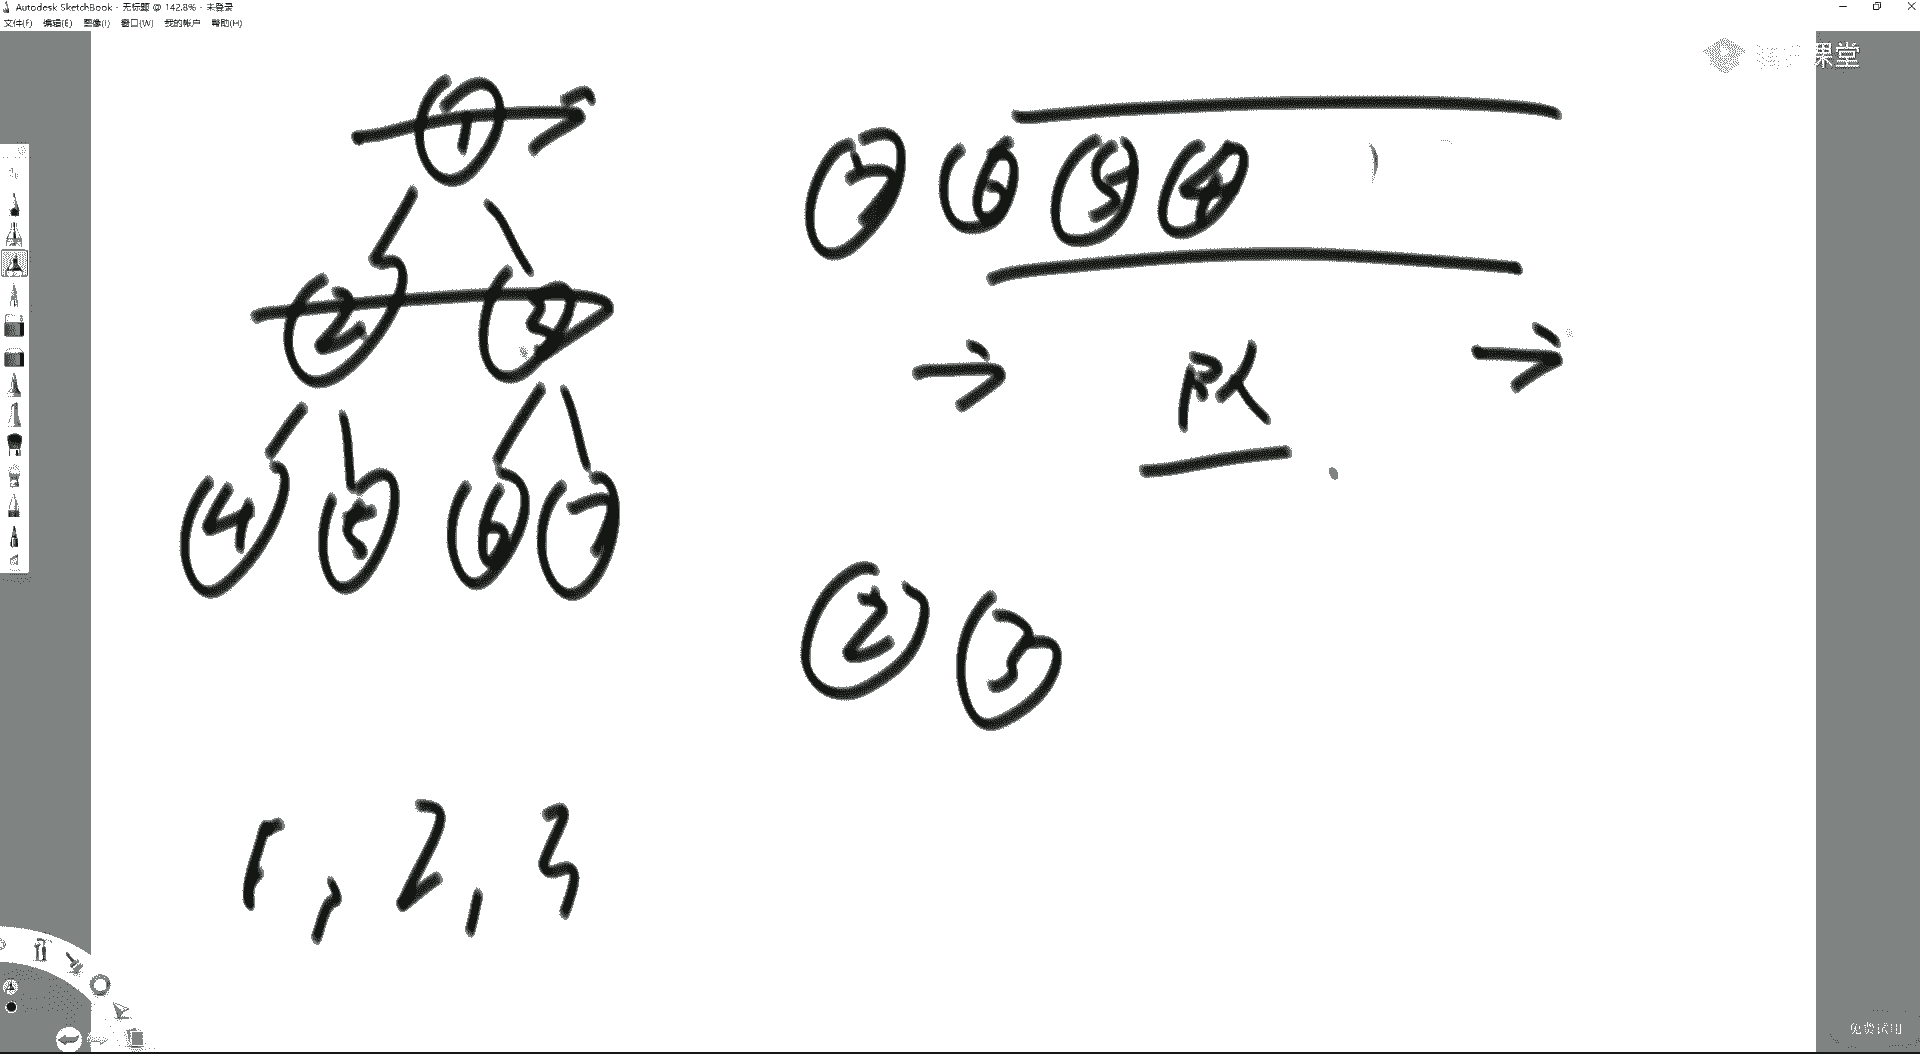 Autodesk SketchBook - 无标题 @ 142.8% - 未登录
文件(F) 编辑(E) 图像(I) 窗口(W) 我的帐户 帮助(H)
课堂
1
7 6 5 4
2 3
队
4 5 6 7
2 3
1, 2, 3
免费试用